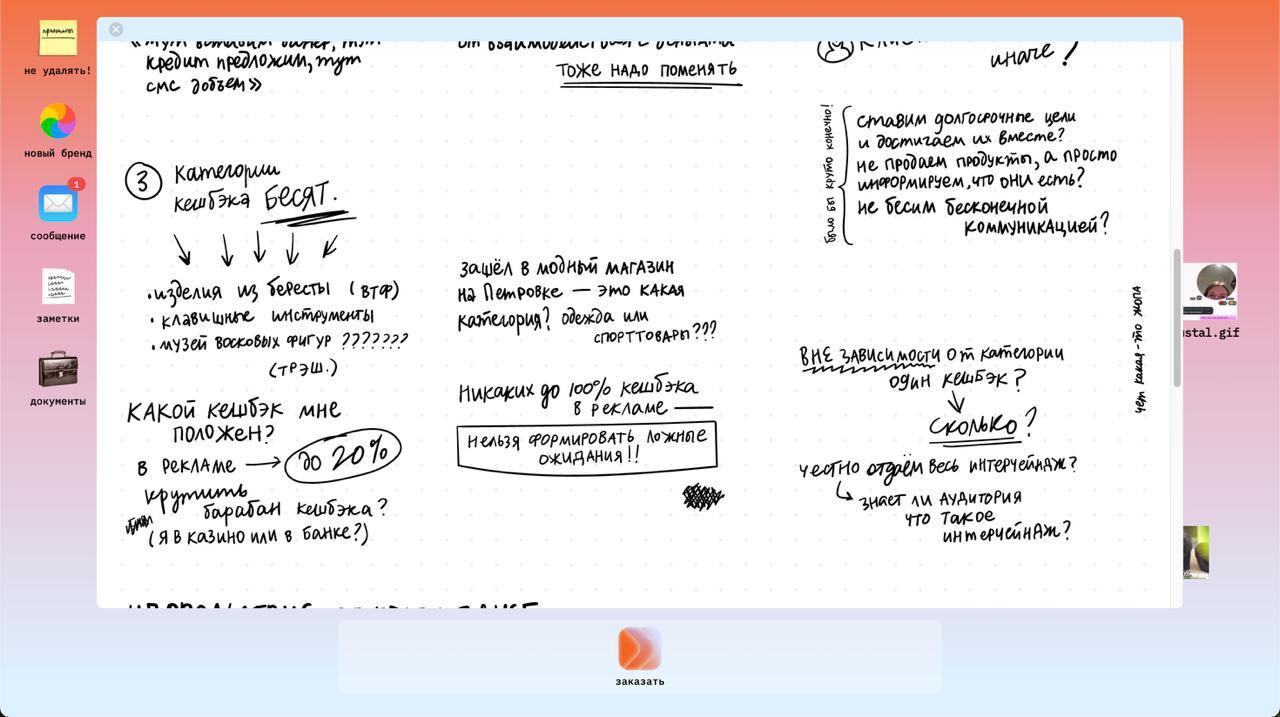 не удалять!
новый бренд
1
сообщение
заметки
документы
кредит предложим, тут
смс добьем»
③ Категории
кешбэка БЕСЯТ.
• изделия из бересты (ВТФ)
• клавишные инструменты
• музей восковых фигур ???????
(ТРЭШ.)
КАКОЙ КЕШБЭК МНЕ
ПОЛОЖЕН?
В РЕКЛАМЕ → до 20%
крутить
барабан кешбэка?
(Я В КАЗИНО ИЛИ В БАНКЕ?)
ТОЖЕ НАДО ПОМЕНЯТЬ
Зашёл в модный магазин
на Петровке — это какая
категория? одежда или
спорттовары???
Никаких до 100% кешбэка
в рекламе —
НЕЛЬЗЯ ФОРМИРОВАТЬ ЛОЖНЫЕ
ОЖИДАНИЯ!!
иначе?
было бы круто конечно!
ставим долгосрочные цели
и достигаем их вместе?
не продаем продукты, а просто
информируем, что они есть?
не бесим бесконечной
коммуникацией?
чет какая-то жопа
ВНЕ ЗАВИСИМОСТИ от категории
один кешбэк?
СКОЛЬКО?
честно отдаём весь интерчейндж?
знает ли аудитория
что такое
интерчейндж?
ustal.gif
заказать